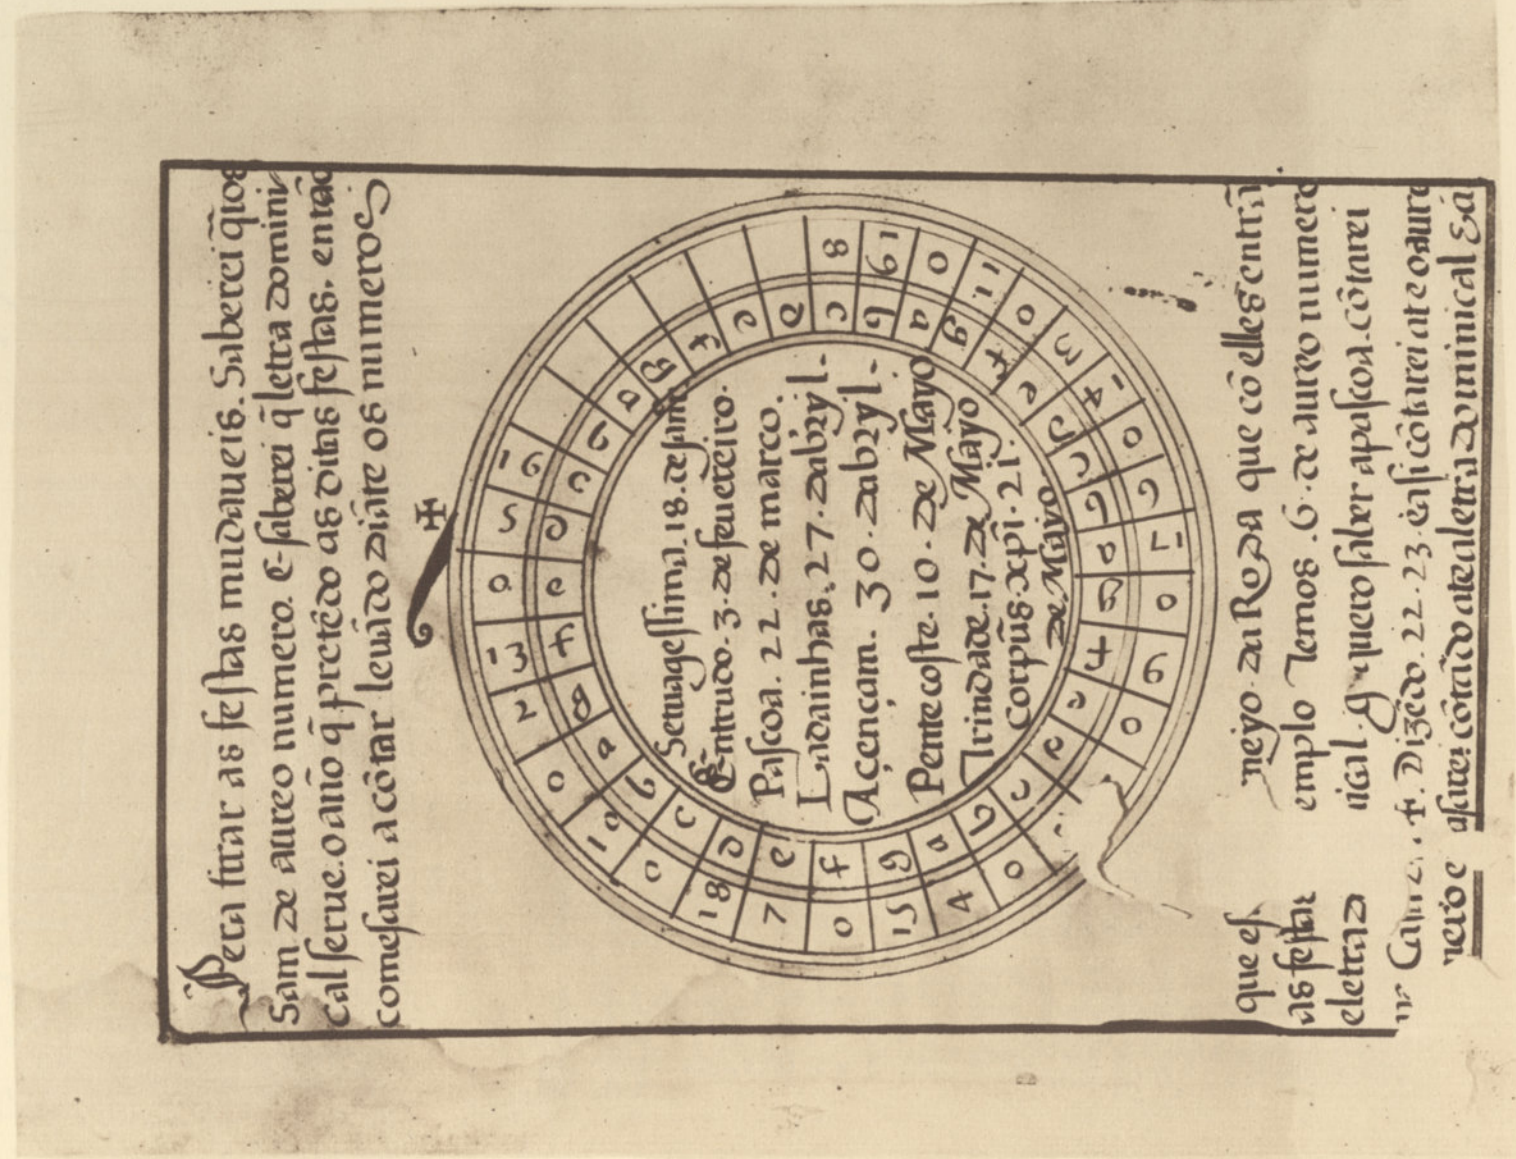 Pera tirar as festas mudaueis. Saberei q̃ ios
Sam de aureo numero. E saberei q̃ letra domini
cal serue. o año q̃ pretẽdo as ditas festas. então
comesarei a cõtar leuãdo diãte os numeros
16 5 0 13 2 0 10 0 18 7 0 15 4 0
0 9 17 6 0 14 3 0 11 0 19 8
c d e f g a b c d e f g a b c d e f g a b c d e f g a b c d e f g a b
Setuagessima. 18. de
Entrudo. 3. de feuereiro.
Pascoa. 22. de marco.
Ladainhas. 27. dabryl.
Açençam. 30. dabryl.
Pentecoste. 10. de Mayo
Trindade. 17. de Mayo
Corpũs xpĩ. 21.
de Mayo
que es neyo da Roda que cõ elles entrã
as festas emplo Temos. 6. de aureo numero
e letra d quero saber a pascoa. cõtarei
f. Dizẽdo. 22. 23. e asi cõtarei ate o aure
nero e cõtãdo ate a letra dominical